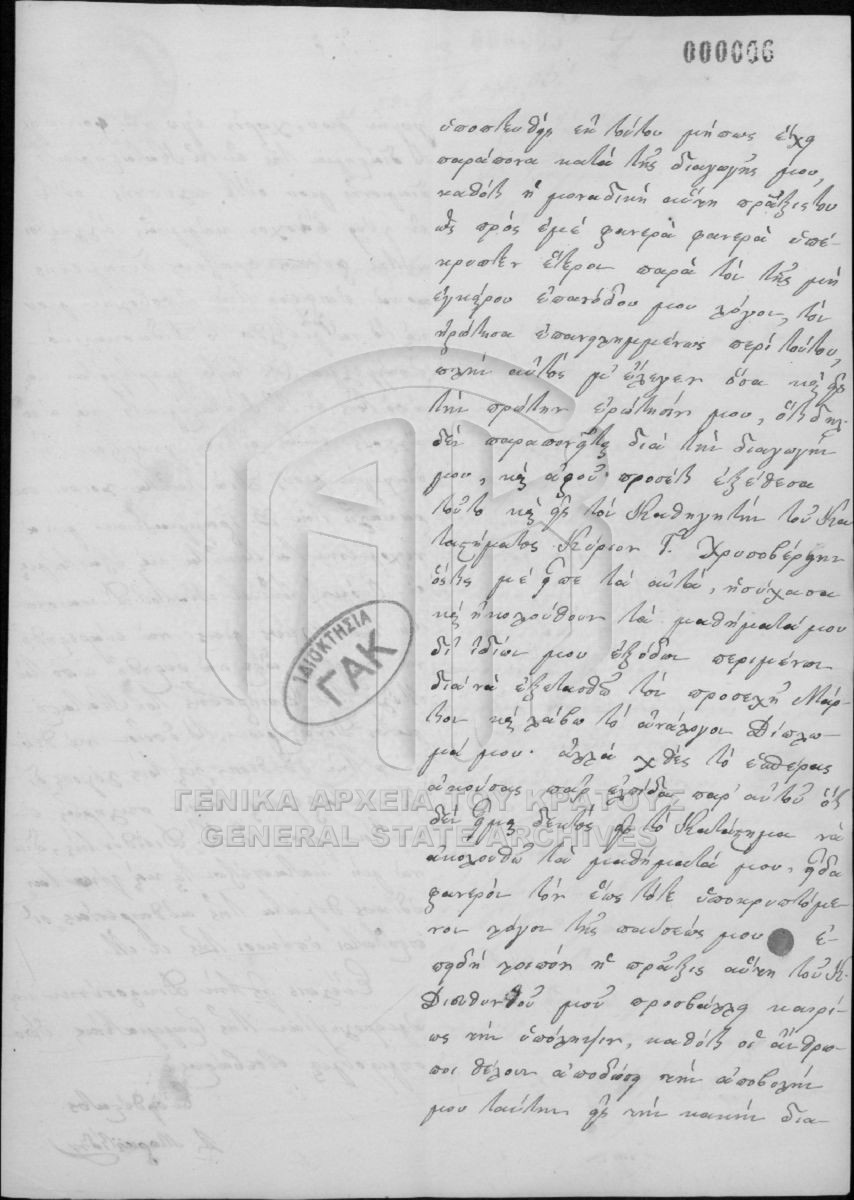 000006
ὑποπτευθεὶς ἐκ τούτου μήπως εἶχε
παράπονα κατὰ τῆς διαγωγῆς μου,
καθότι ἡ μοναδικὴ αὕτη πρᾶξις του
ὡς πρὸς ἐμὲ φανερὰ φανερὰ ὑπέ-
κρυπτεν ἕτερον παρὰ τὸν τῆς μὴ
ἐγκαίρου ἐπανόδου μου λόγον, τὸν
ἠρώτησα ἐπανειλημμένως περὶ τούτου,
πλὴν αὐτὸς μ' ἔλεγεν ὅσα καὶ εἰς
τὴν πρώτην ἐρώτησίν μου, ὅτι δηλ.
δὲν παραπονεῖται διὰ τὴν διαγωγήν
μου, καὶ ἀφοῦ προσέτι ἐξέθεσα
τοῦτο καὶ εἰς τὸν Καθηγητὴν τοῦ Κα
ταστήματος Κύριον Γ. Χρυσοβέργην
ὅστις μὲ εἶπε τὰ αὐτά, ἡσύχασα
καὶ ἠκολούθουν τὰ μαθήματά μου
δι' ἰδίων μου ἐξόδων περιμένων
διὰ νὰ ἐξετασθῶ τὸν προσεχῆ Μάρ-
τιον καὶ λάβω τὸ ἀνάλογον Δίπλω-
μά μου. ἀλλὰ χθὲς τὸ ἑσπέρας
ἀκούσας παρ' ἐλπίδα παρ' αὐτοῦ ὅτι
δὲν εἶμαι δεκτὸς εἰς τὸ Κατάστημα νὰ
ἀκολουθῶ τὰ μαθήματά μου, εἶδα
φανερὸν τὸν ἕως τότε ὑποκρυπτόμε
νον λόγον τῆς παύσεώς μου ἐ-
πειδὴ λοιπὸν ἡ πρᾶξις αὕτη τοῦ Κ.
Διευθυντοῦ μοῦ προσβάλλει καιρί-
ως τὴν ὑπόληψιν, καθότι οἱ ἄνθρω-
ποι θέλουν ἀποδώσει τὴν ἀποβολήν
μου ταύτην εἰς τὴν κακὴν δια-
ΙΔΙΟΚΤΗΣΙΑ
ΓΑΚ
ΓΕΝΙΚΑ ΑΡΧΕΙΑ ΤΟΥ ΚΡΑΤΟΥΣ
GENERAL STATE ARCHIVES